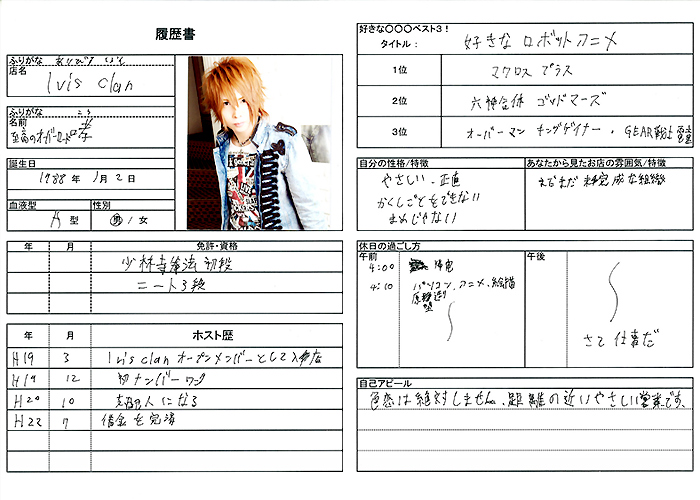 履歴書
ふりがな
店名
Ivis clan
ふりがな こう
名前
至高のオーバーロード 孝
誕生日
1988 年 1月 2日
血液型 性別
A 型 男 / 女
年 月 免許・資格
少林寺拳法 初段
ニート3段
年 月 ホスト歴
H19 3 Ivis clan オープンメンバーとして入店
H19 12 初ナンバーワン
H20 10 支配人になる
H22 7 借金を完済
好きな〇〇〇ベスト3!
タイトル: 好きな ロボットアニメ
1位 マクロス プラス
2位 六神合体 ゴッドマーズ
3位 オーバーマン キングゲイナー ・ GEAR戦士 電童
自分の性格/特徴
やさしい、正直
かくしごとをできない
まめじゃない
あなたから見たお店の雰囲気/特徴
まだまだ 未完成な組織
休日の過ごし方
午前
4:00 帰宅
4:10 パソコン、アニメ、絵描
午後
さて 仕事だ
自己アピール
色恋は絶対しません。距離の近いやさしい営業です。